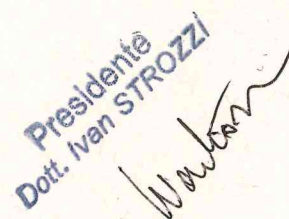 Presidente
Dott. Ivan STROZZI